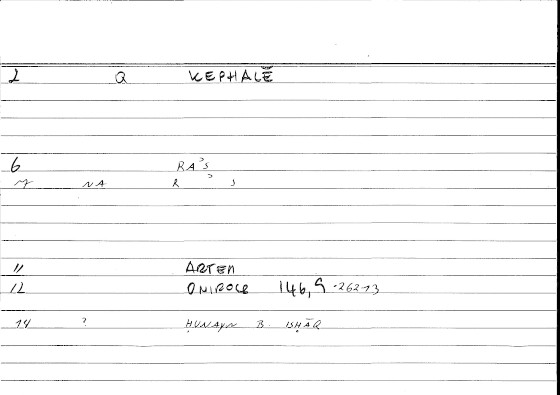 2 Q KEPHALĒ
6 RAʾS
M NA R ʾ S
11 ARTEM
12 ONIROCR 146,9-262-13
14 ? ḤUNAYN B. ISḤĀQ